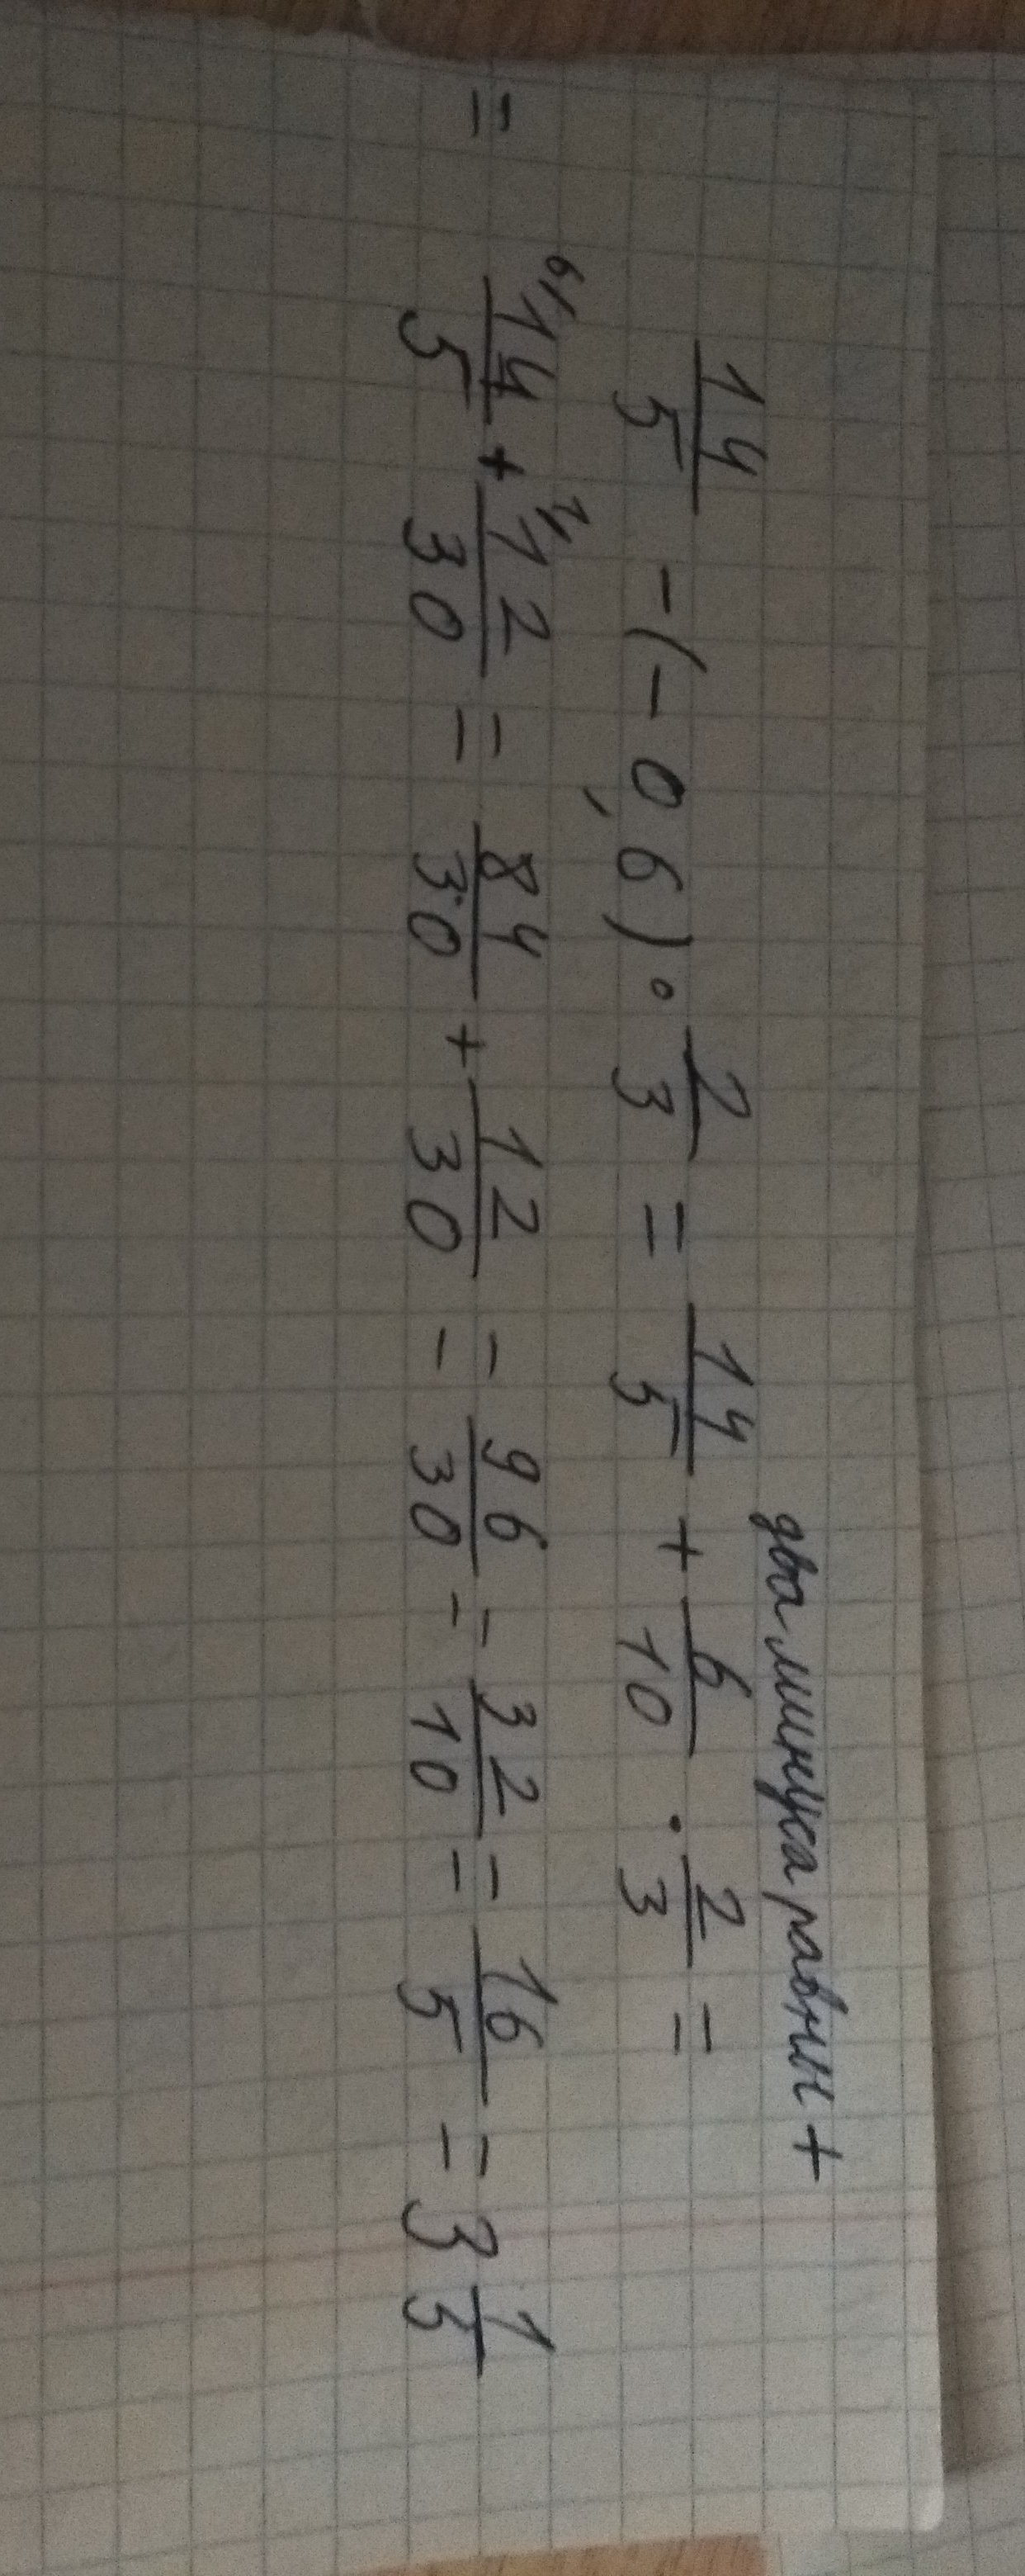 два минуса равны +
14/5 - (- 0,6) · 2/3 = 14/5 + 6/10 · 2/3 =
= 6\14/5 + 1\12/30 = 84/30 + 12/30 = 96/30 = 32/10 = 16/5 = 3 1/5